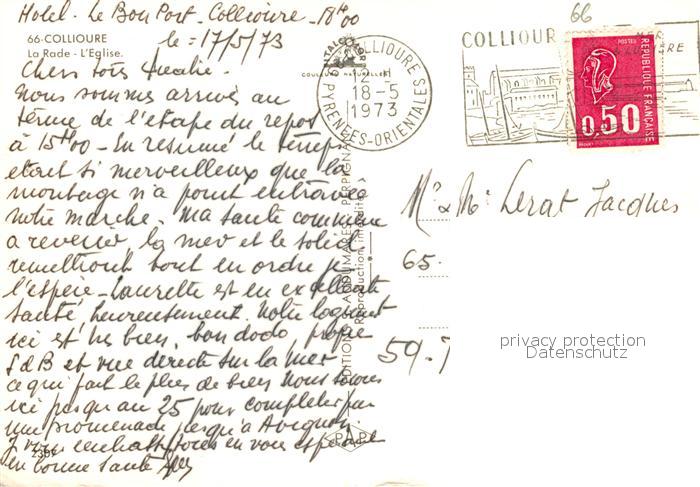 Hotel. Le Bon Port - Collioure - 18H00
66-COLLIOURE
La Rade - L'Eglise.
le = 17/5/73
Chers tous
Nous sommes arrivés au
terme de l'etape du repos
à 15H00 - En resumé le temps
etait si merveilleux que la
montage n'a point entravée
notre marche. Ma santé commence
a revenir, la mer et le soleil
remettront tout en ordre je
l'espère - Laurette est en excellente
santé, heureusement. Notre logement
ici est très bien, bon dodo, propre
SdB et vue directe sur la mer
ce qui fait le plus de bien. Nous sommes
ici jusqu'au 25 pour completer par
une promenade jusqu'à Avignon
vous en vous esperant
en bonne santé
2359
COULEURS NATURELLES
COLLIOURE
18-5
1973
PYRENEES-ORIENTALES
66
COLLIOUR
MER
POSTES
REPUBLIQUE FRANÇAISE
0,50
EDITIONS
PERPIGNAN
Reproduction interdite
Mr & Me Lerat Jacques
65.
59.7
privacy protection
Datenschutz